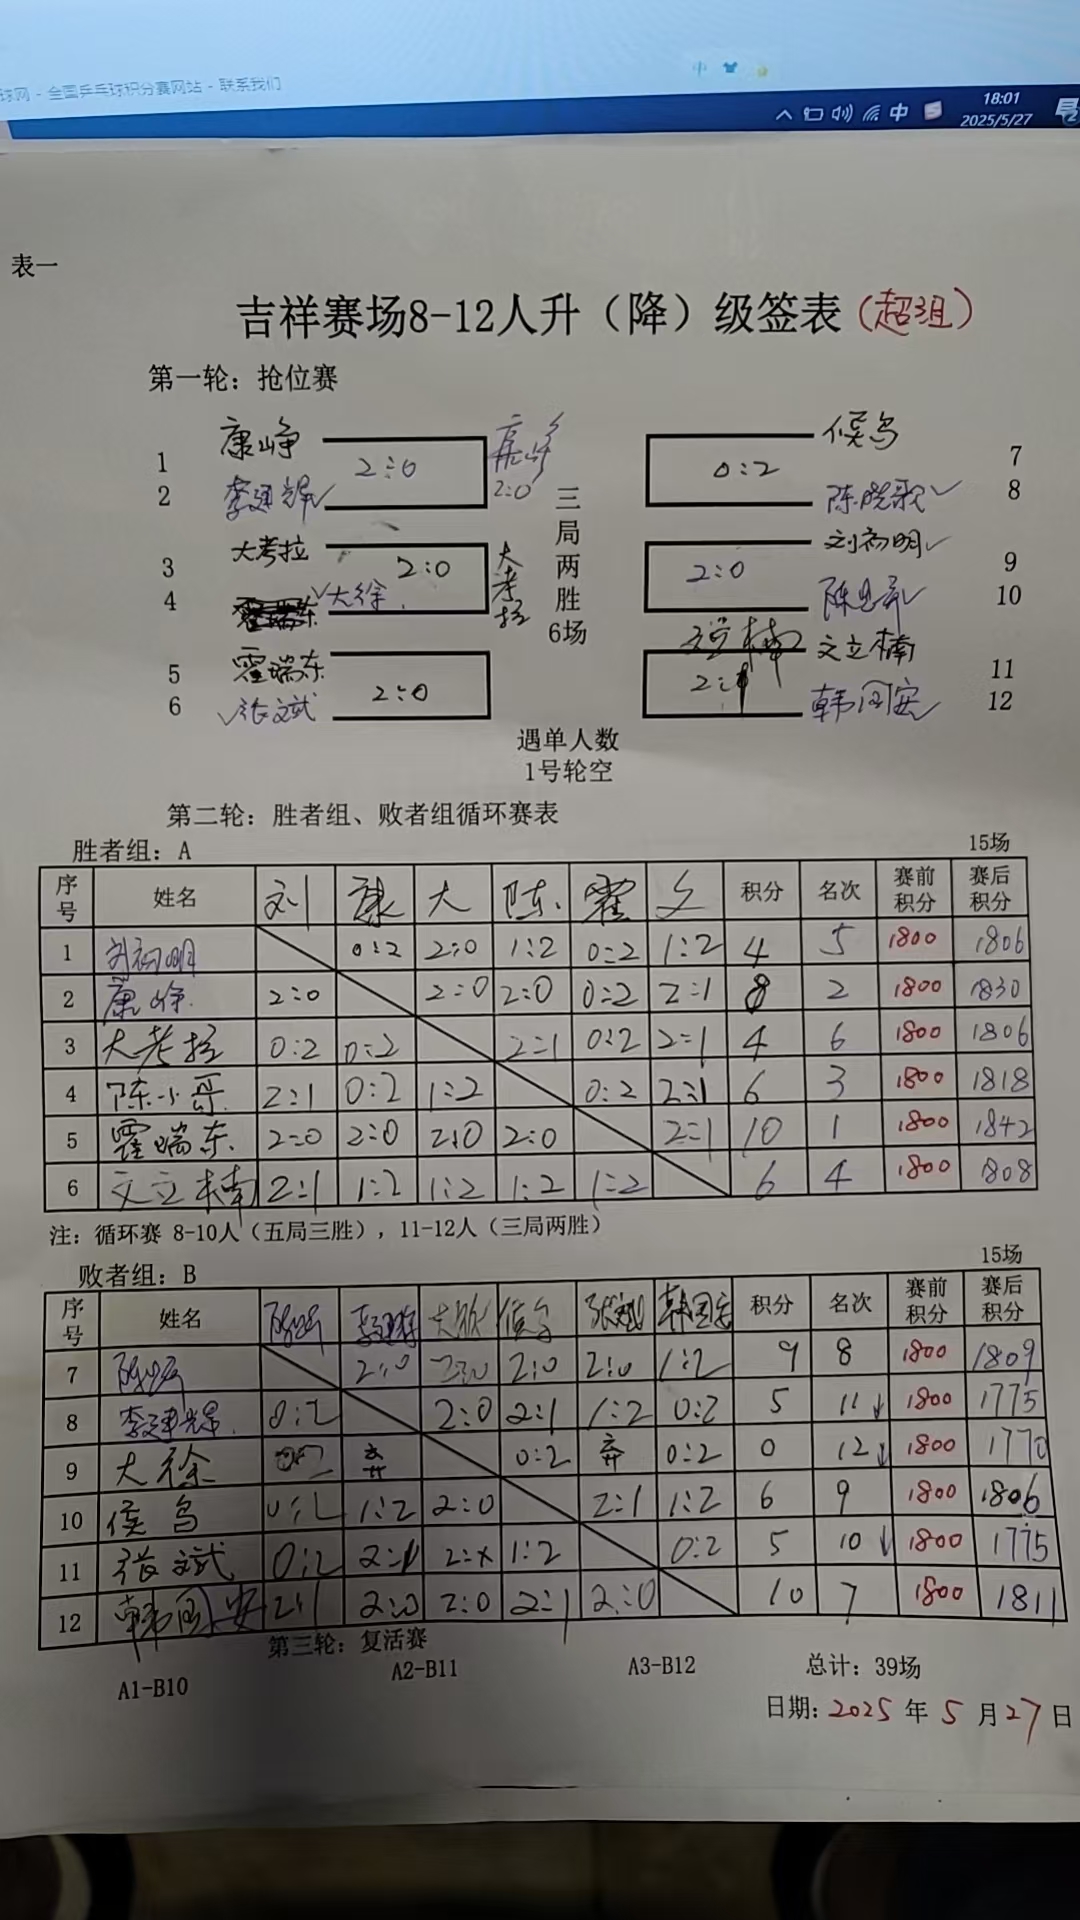 球网 - 全国乒乓球积分赛网站 - 联系我们
中
中
18:01
2025/5/27
2
表一
吉祥赛场8-12人升（降）级签表 (超组)
第一轮：抢位赛
1 康峥 2:0 康峥 2:0
2 李建辉
3 大考拉 2:0 大考拉
4 霍瑞东 大徐
5 霍瑞东 2:0
6 张文斌
三局两胜
6场
候鸟 0:2 7
陈晓歌 8
刘初明 2:0 9
10
文立楠 11
韩国安 12
遇单人数
1号轮空
第二轮：胜者组、败者组循环赛表
胜者组：A 15场
序号 姓名 刘 康 大 陈 霍 文 积分 名次 赛前积分 赛后积分
1 刘初明 0:2 2:0 1:2 0:2 1:2 4 5 1800 1806
2 康峥 2:0 2:0 2:0 0:2 2:1 8 2 1800 1830
3 大考拉 0:2 0:2 2:1 0:2 2:1 4 6 1800 1806
4 陈小哥 2:1 0:2 1:2 0:2 2:1 6 3 1800 1818
5 霍瑞东 2:0 2:0 2:0 2:0 2:1 10 1 1800 1842
6 文立楠 2:1 1:2 1:2 1:2 1:2 6 4 1800 1808
注：循环赛 8-10人（五局三胜），11-12人（三局两胜）
15场
败者组：B
序号 姓名 李建辉 大徐 候鸟 张文斌 韩国安 积分 名次 赛前积分 赛后积分
7 2:0 2:0 2:0 2:0 1:2 9 8 1800 1809
8 李建辉 0:2 2:0 2:1 1:2 0:2 5 11↓ 1800 1775
9 大徐 0:2 弃 0:2 弃 0:2 0 12↓ 1800 1770
10 侯鸟 0:2 1:2 2:0 2:1 1:2 6 9 1800 1806
11 张文斌 0:2 2:1 2:x 1:2 0:2 5 10↓ 1800 1775
12 韩国安 2:1 2:0 2:0 2:1 2:0 10 7 1800 1811
第三轮：复活赛
A1-B10 A2-B11 A3-B12 总计：39场
日期：2025 年 5 月 27 日